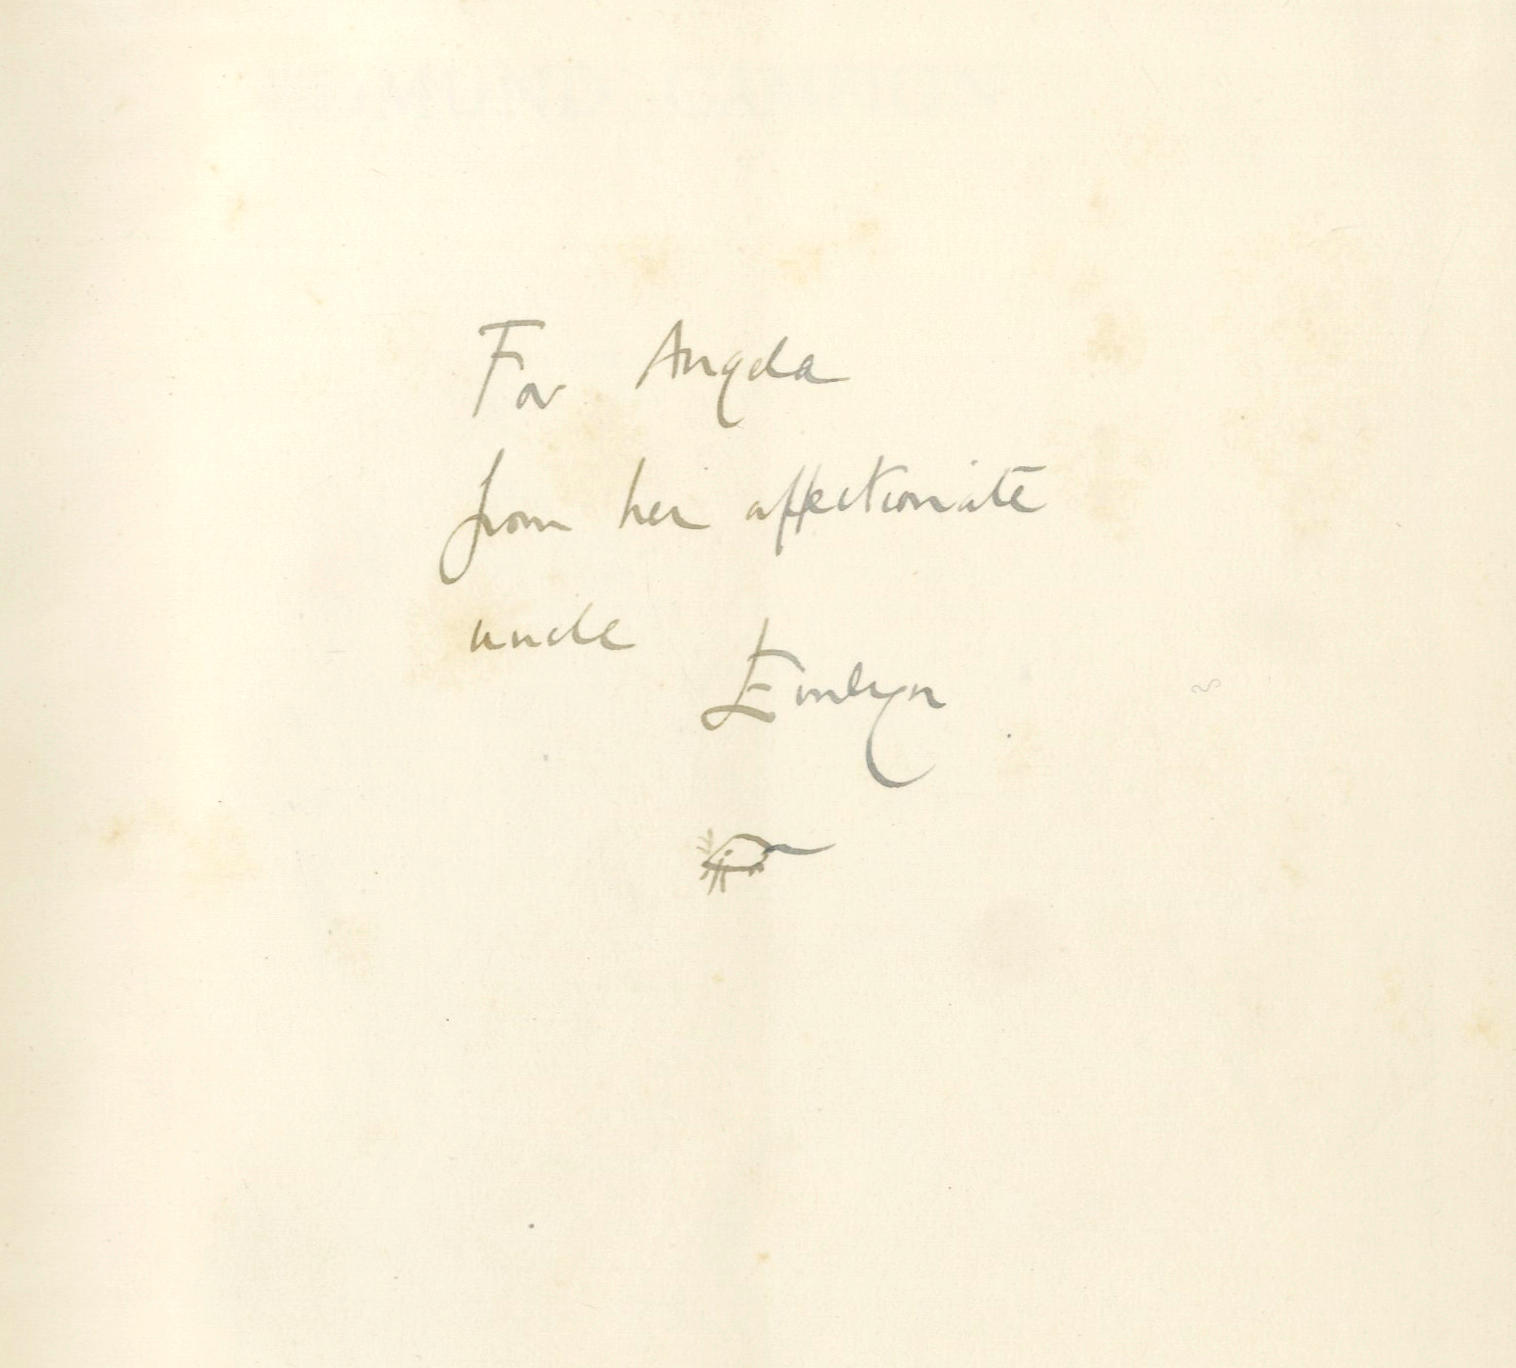 For Angela
from her affectionate
uncle
Emlyn